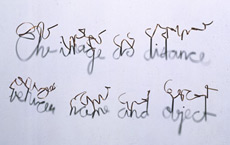 The image as distance
between name and object